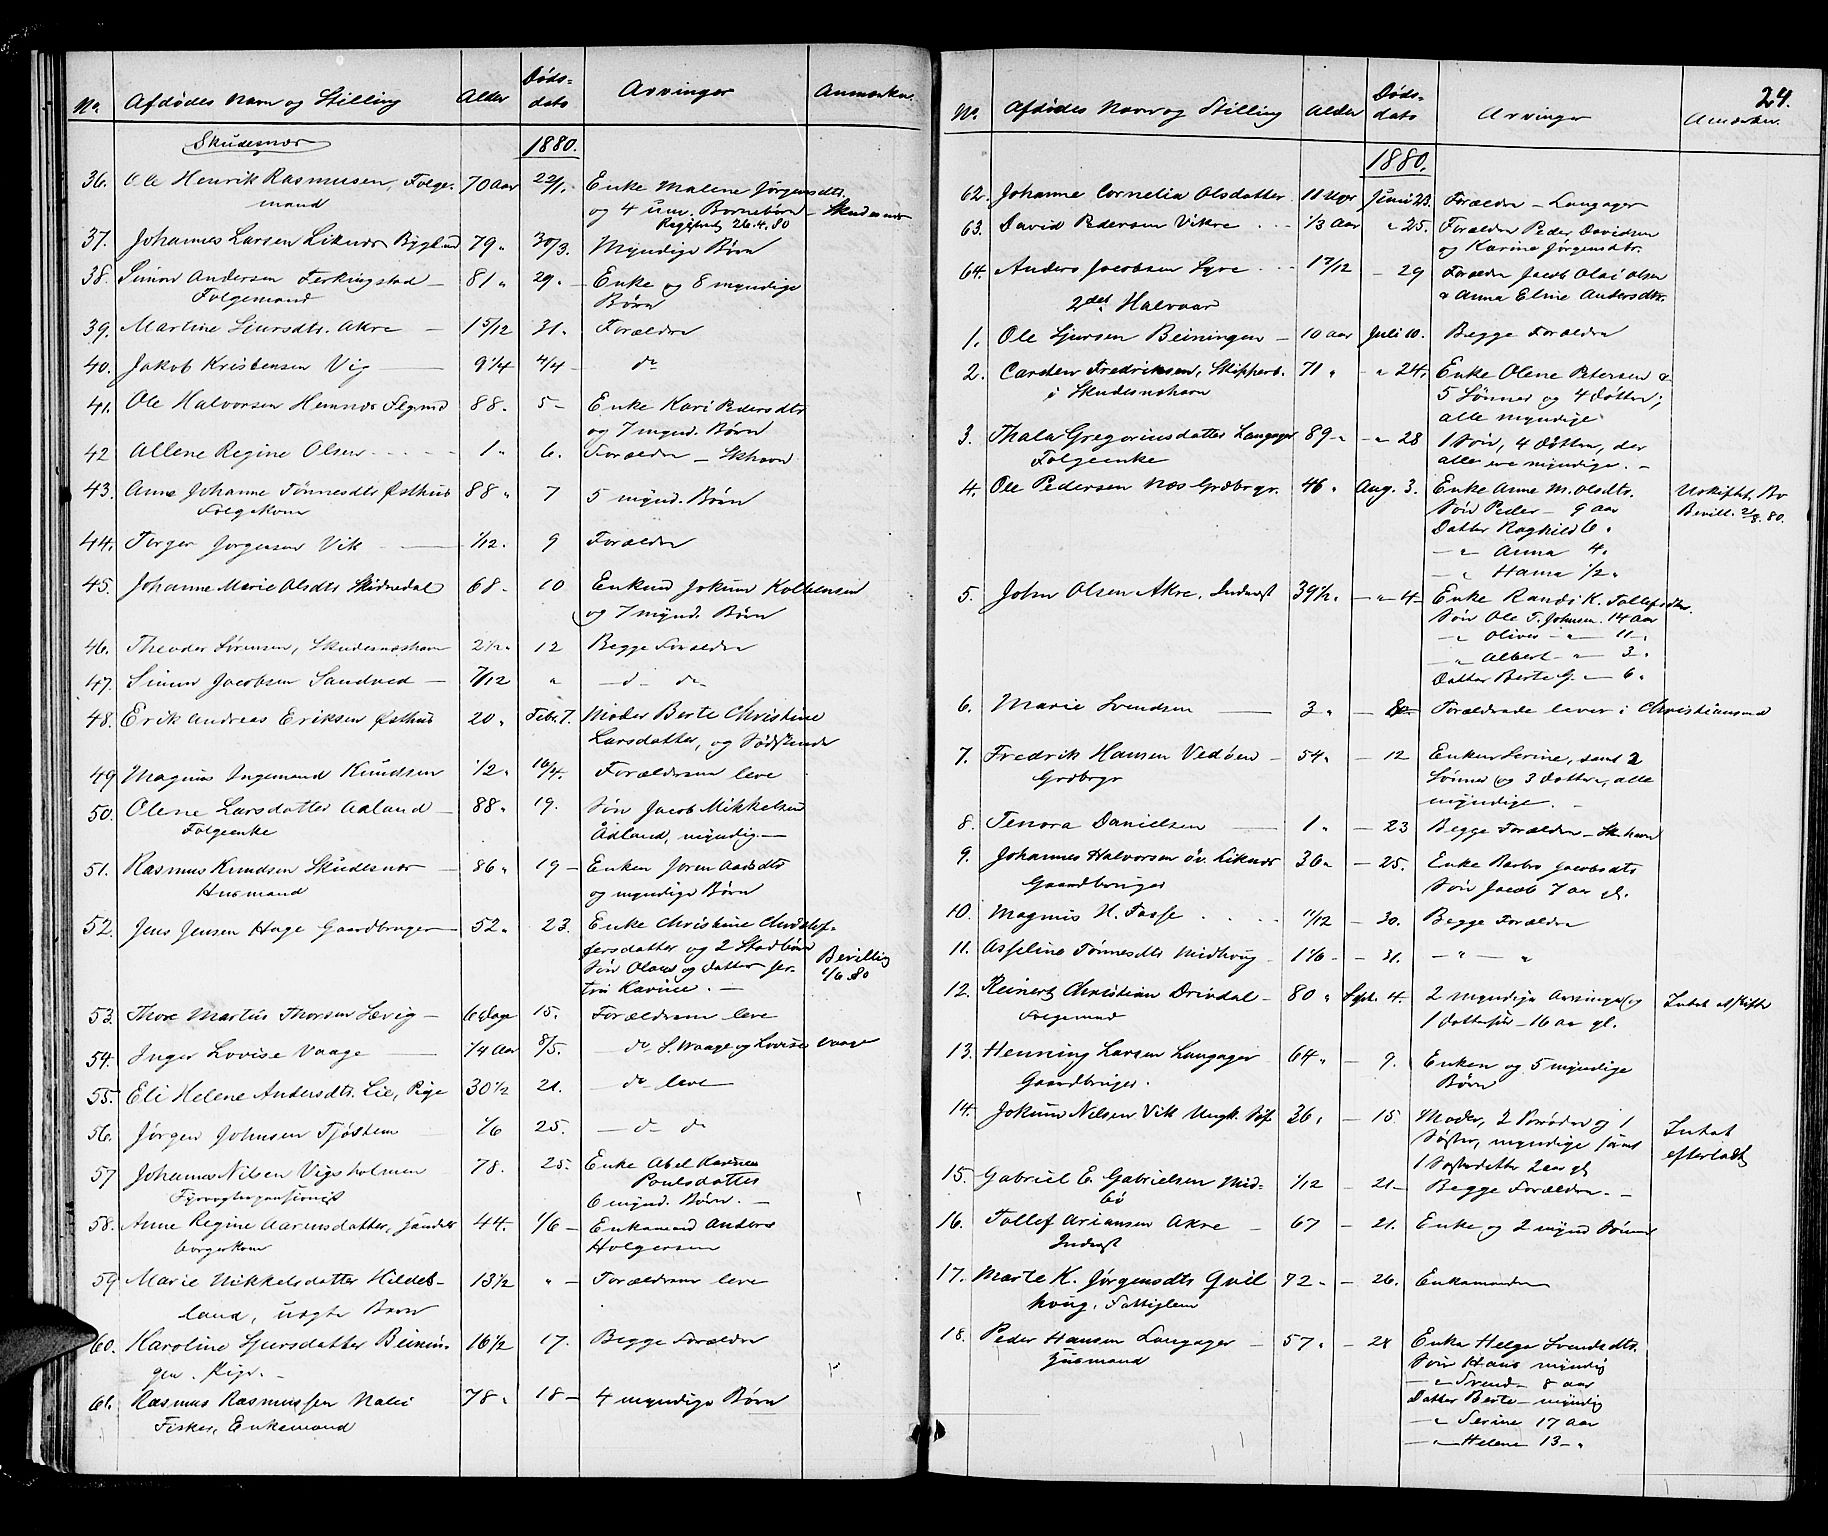 No. Afdødes Navn og Stilling Alder Døds-dato Arvinger Anmærkn.
Skudesnæs 1880.
36. Ole Henrik Rasmusen, Folge- 70 Aar 22/1. Enke Malene Jørgensdts.
mand og 4 um. Børnebørn – Skudesnæs
26.4.80
37. Johannes Larsen Liknæs 79 " 30/3. Myndige Børn
38. Simon Andersen Ferkingstad – 81 " 29 " – Enke og 8 myndige
Folgemand Børn
39. Martine Sjursdts. Akre – 1 5/12 31. Forældre
40. Jakob Kristensen Vig 9 1/4 4/4 – do
41. Ole Halvorsen Hemnæs 88. 5 – Enke Kari Pedersdts
og 7 mynd. Børn
42 Allene Regine Olsen 1. 6. Forældre – Skhavn
43. Anne Johanne Tønnesdts Østhus 88 " 7 5 mynd. Børn
Folgekone
44. Torger Jørgensen Vik 1/12. 9 Forældre
45. Johanne Marie Olsdts Skidnedal 68 – 10 Enkem. Jokum Kolbensen
og 7 mynd. Børn
46. Theodor Sørensen, Skudesnæshavn 2 1/2 " 12 Begge Forældre
47. Simon Jacobsen Sandved – 7/12 " – d – do
48. Erik Andreas Eriksen Østhus 20 " Febr. 7. Moder Berte Christine
Larsdatter, og Sødskende
49 Magnus Ingemand Knudsen 1/2 " 16/4. Forældrene leve
50. Olene Larsdatter Adland – 88 " 19. Søn Jacob Mikkelsen
Folgeenke Ådland, myndig. –
51. Rasmus Knudsen Skudesnæs – 86 " 19 – Enken Joren Aadsdts
Husmand og myndige Børn
52. Jens Jensen Hage Gaardbruger 52 " 23. Enke Christine Christof-
fersdatter og 2 Stedbørn
Søn Olaus og Datter Ser- Bevilling
ine Karine. – 1/6.80
53. Thore Martus Thorsen Sævig – 6 Dage 15. Forældrene leve
54. Inger Lovise Vaage 1/4 Aar 8/5. – do S. Waage og Lovise Vaage
55. Eli Helene Andersdts. Lie, Pige 30 1/2 21. – do leve
56. Jørgen Johnsen Tjøstem 1/6 25. – d – do
57 Johannes Nilsen Vigsholmen 78. 25. Enke Abel Karine
Fyrvogterpensionist Poulsdatter
6 mynd. Børn. –
58. Anne Regine Aarensdatter, 44. 1/6 – Enkemand Anders
borgerkone Holgersen
59 Marie Mikkelsdatter Hildes- 13 1/2 " – Forældrene leve
land, uægte Barn
60. Karoline Sjursdatter Beinin- 16 1/2 17. Begge Forældre
gen. Pige. –
61. Rasmus Rasmussen Nalei 78 " 18 – 4 myndige Børn
Fisker, Enkemand
24.
No. Afdødes Navn og Stilling Alder Døds-dato Arvinger Anmærkn.
1880.
62. Johanne Cornelia Olsdatter 11 Uger Juni 23. Forældre – Langager
63. David Pedersen Vikre 1/3 Aar " 25. Forældre Peder Davidsen
og Karine Jørgensdtr.
64. Anders Jacobsen Syre 17/12 – 29 Forældre Jacob Olai Olsen
& Anna Eline Andersdtr.
2det Halvaar
1. Ole Sjursen Beiningen – 10 Aar Juli 10. Begge Forældre
2. Carsten Fredriksen, Skipperb. 71 " – " 24. Enke Olene Petersen &
i Skudesnæshavn 5 Sønner og 4 Døttre;
alle myndige
3. Thala Gregoriusdatter Langager 89 – " – " 28 1 Søn, 4 Døttre, der
Folgeenke alle ere myndige. –
4. Ole Pedersen Næs Grdbrgr. 46 " Aug. 3. Enke Anne M. Olsdts. Uskiftet Bo
Søn Peder – 9 Aar Bevill. 2/8.80.
Datter Raghild 6 "
– " Anna 4 "
– " Hanna 1/2 "
5. John Olsen Akre, Inderst 39 1/2 " – " 4 – Enke Randi K. Tollefsdtr.
Søn Ole T. Johnsen. 14 Aar
– " Oliver – " – 11 "
– " Albert – " – 3 "
Datter Berte G. – 6 "
6. Marie Svendsen 3 " – Forældrene lever i Christianssand
7. Fredrik Hansen Vedøen – 54 " – 12 Enken Serine, samt 2
Grdbrgr Sønner og 3 Døttre, alle
myndige. –
8. Tenora Danielsen 1 " – 23 Begge Forældre – Sk.havn
9. Johannes Halvorsen øv. Liknæs 30 " – 25. Enke Barbro Jacobsdts
Gaardbruger Søn Jacob 7 Aar gl.
10. Magnus H. Fosse 11/12 – 30. Begge Forældre
11. Asseline Tønnesdts Midhoug 1 1/6 – – 31. – " – "
12. Reinert Christian Drivdal – 80 " Sept. 4. 2 myndige Arvinger og Intet at skifte
Folgemand 1 Dattersøn – 16 Aar gl.
13. Henning Larsen Langager 64 " – 9. Enken og 5 myndige
Gaardbruger. Børn
14. Jokum Nilsen Vik Ungk. 36 " – 15. Moder, 2 Brødre og 1 Intet
Søster, myndige samt efterladt
1 Søsterdatter 2 Aar gl
15. Gabriel E. Gabrielsen Mid- 1/12 – 21 – Begge Forældre. –
bø
16. Tollef Ariansen Akre – 67 – 21. Enke og 2 mynd Sønner
Inderst
17. Marte K. Jørgensdts Qvil 72 " – 26. Enkemanden
houg, Fattiglem
18. Peder Hansen Langager – 57 " – 28 Enke Helga Svendsdts.
Husmand Søn Hans myndig
– " Svend – 8 Aar
Datter Berte – myndig
– " Serine 17 Aar
– " Helene 13 – "